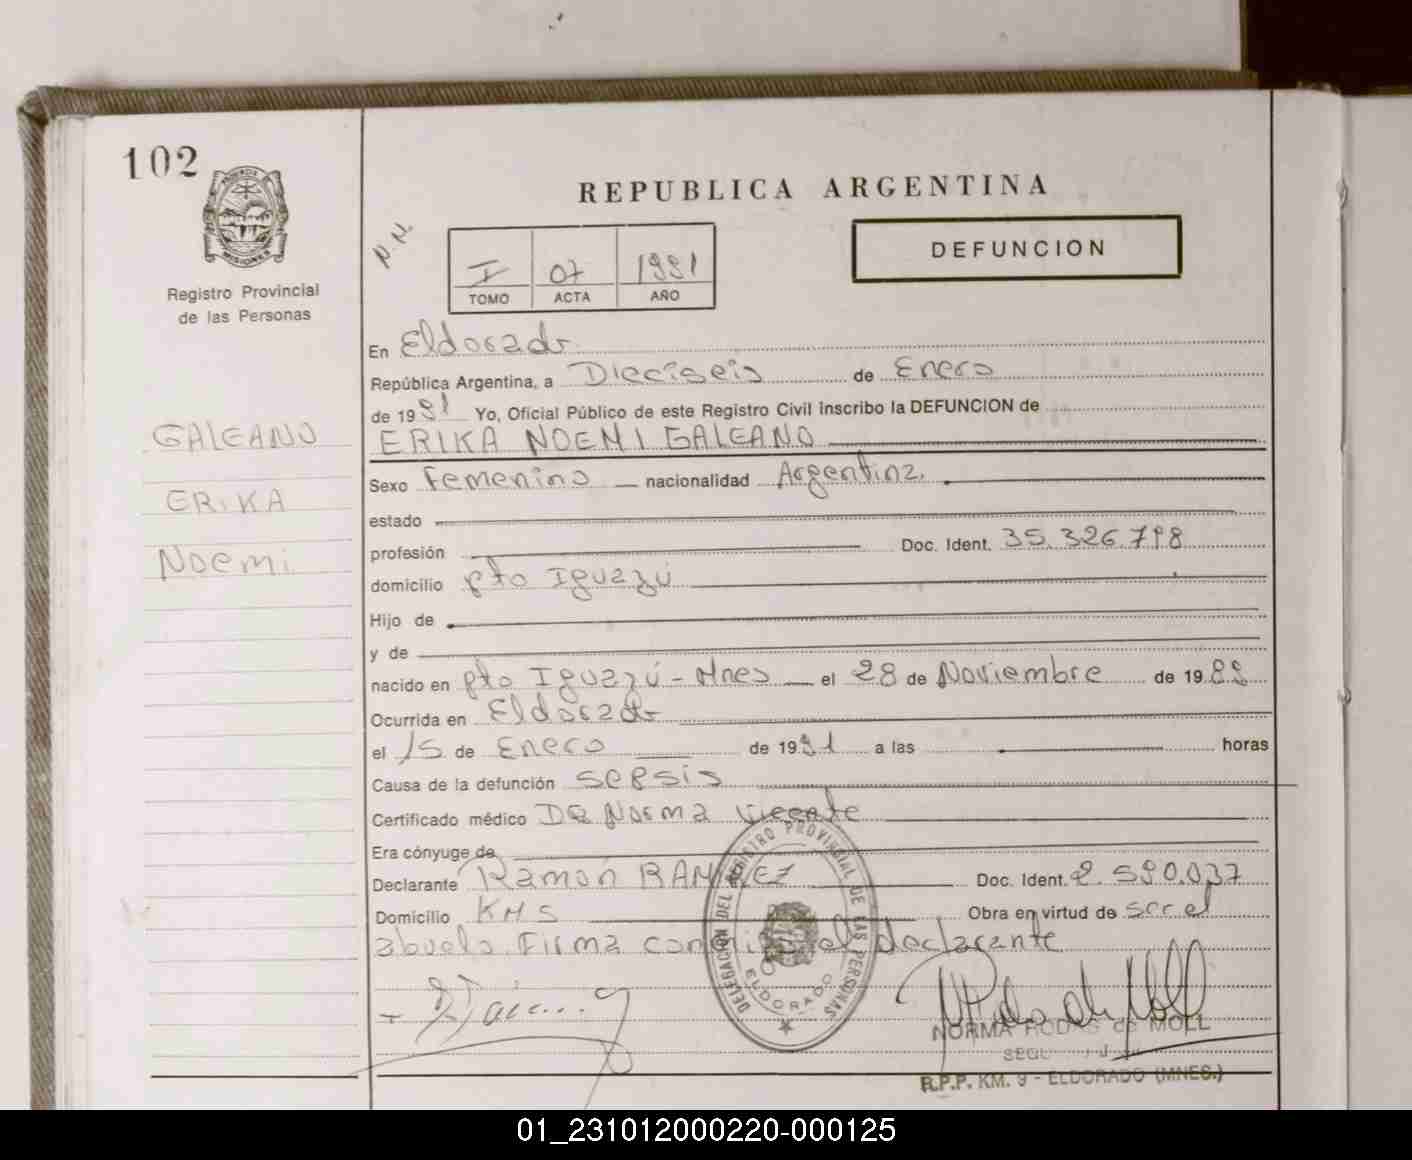 102
PROVINCIA DE
MISIONES
Registro Provincial
de las Personas
GALEANO
ERIKA
Noemi
REPUBLICA ARGENTINA
N.N.
I 07 1991
TOMO ACTA AÑO
DEFUNCION
En Eldorado
República Argentina, a Dieciseis de Enero
de 1991 Yo, Oficial Público de este Registro Civil inscribo la DEFUNCION de
ERIKA NOEMI GALEANO
Sexo Femenino nacionalidad Argentina.
estado
profesión Doc. Ident. 35.326.798
domicilio pto Iguazú
Hijo de
y de
nacido en pto Iguazú - Mnes el 28 de Noviembre de 1989
Ocurrida en Eldorado
el 15 de Enero de 1991 a las horas
Causa de la defunción sepsis
Certificado médico DRa Norma Vicente
Era cónyuge de
Declarante Ramón RAMIREZ Doc. Ident. 2.590.037
Domicilio KM 5 Obra en virtud de ser el
abuelo. Firma conmigo el declarante
DELEGACION DEL REGISTRO PROVINCIAL DE LAS PERSONAS
ELDORADO
NORMA RODAS de MOLL
R.P.P. KM. 9 - ELDORADO (MNES.)
01_231012000220-000125